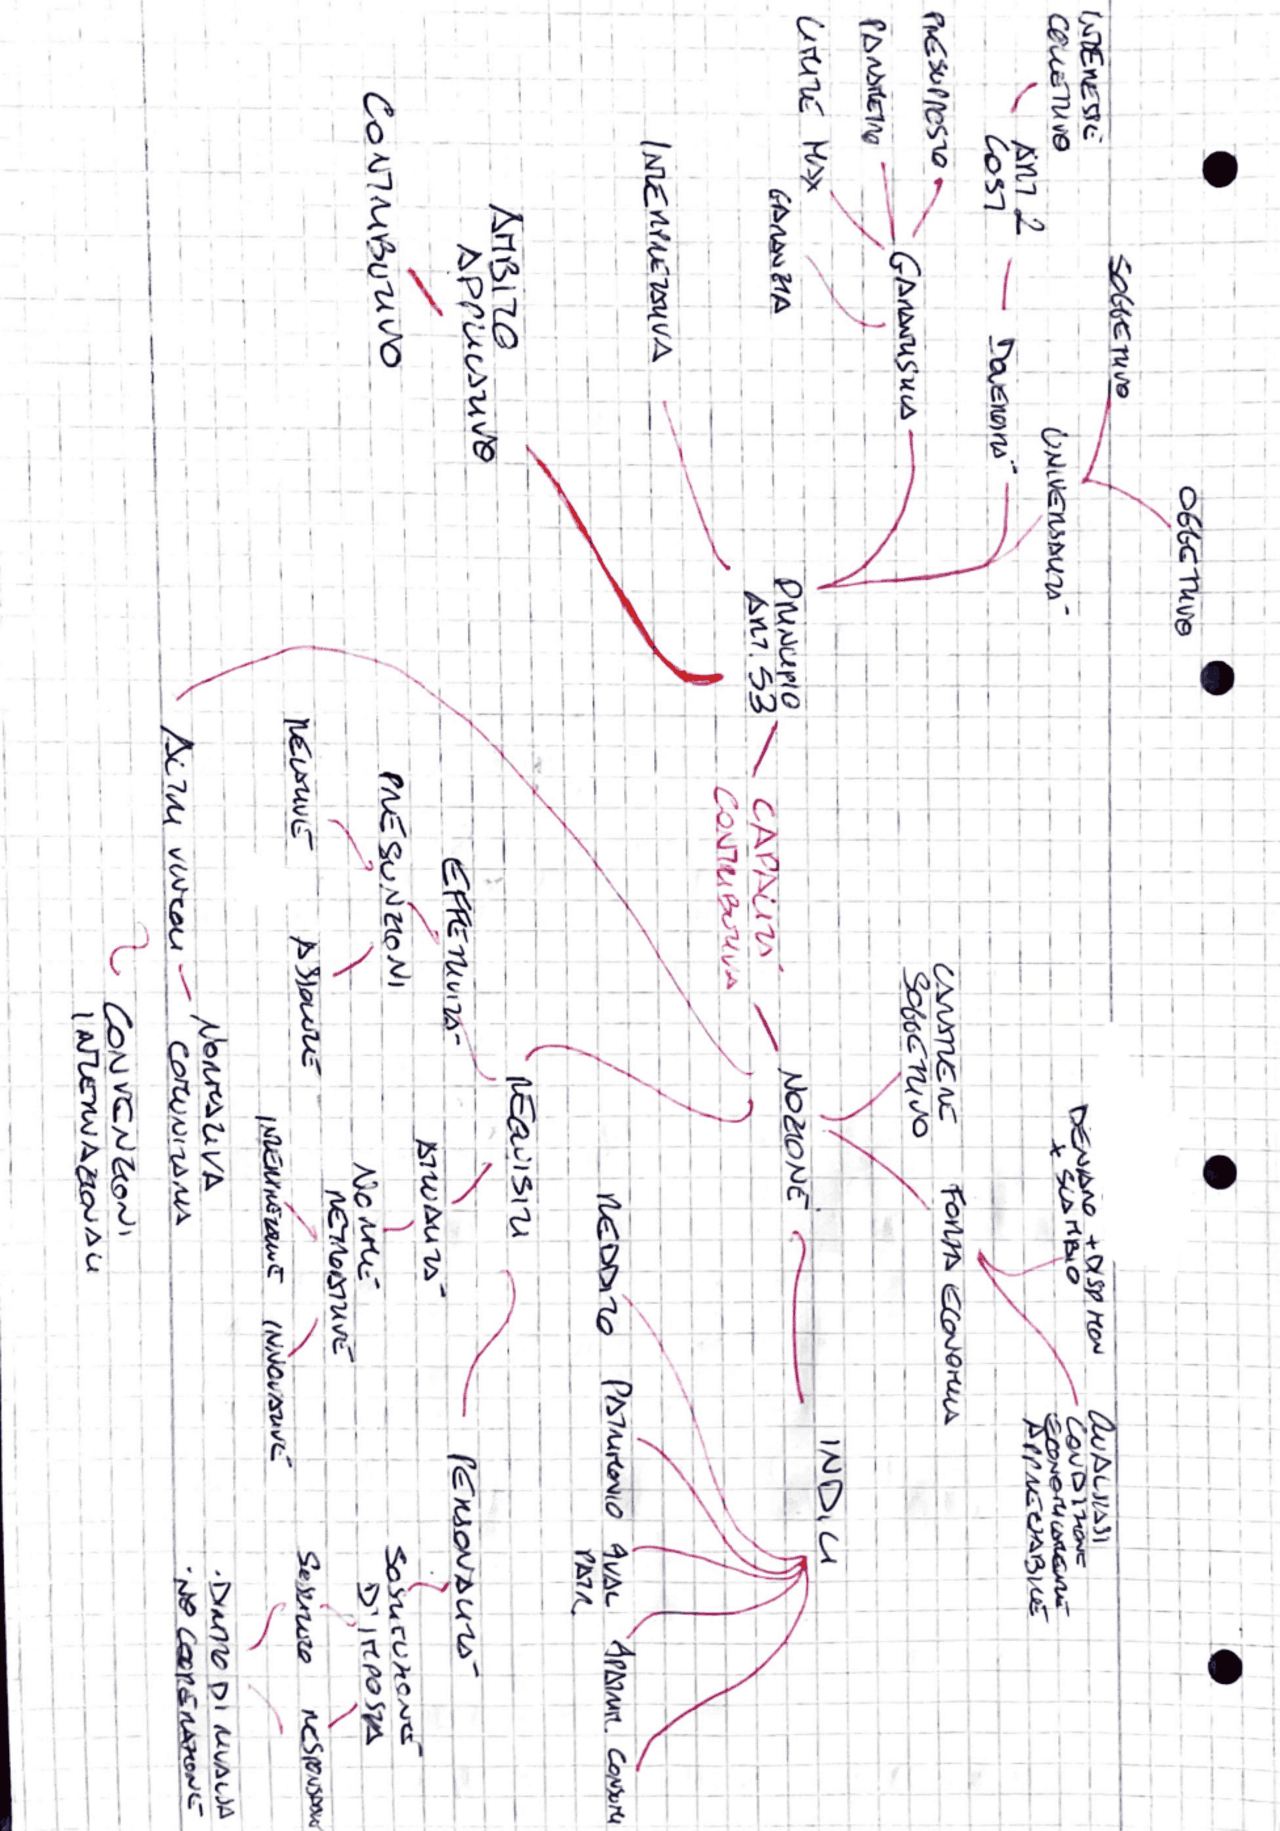 OGGETTIVO
SOGGETTIVO
UNIVERSALITÀ
INTERESSE
COLLETTIVO
ART 2
COST
DOVEROSITÀ
PRESUPPOSTO
PARAMETRO
LIMITE MAX
GARANZIA
GARANTISTICA
INTERPRETATIVA
AMBITO
APPLICATIVO
CONTRIBUTIVO
PRINCIPIO
ART. 53
CAPACITÀ
CONTRIBUTIVA
NOZIONE
CARATTERE
SOGGETTIVO
FORZA ECONOMICA
DENARO + DISP MON
X SCAMBIO
QUALSIASI
CONDIZIONE
ECONOMICAMENTE
APPREZZABILE
INDICI
REDDITO
PATRIMONIO
PATR.
CONSUMI
REQUISITI
EFFETTIVITÀ
PRESUNZIONI
RELATIVE
ASSOLUTE
ATTUALITÀ
NORME
RETROATTIVE
INTERPRETATIVE
INNOVATIVE
PERSONALITÀ
SOSTITUZIONE
D'IMPOSTA
RESPONSABILE
· DIRITTO DI RIVALSA
· NO COOPERAZIONE
ALTRI VINCOLI
NORMATIVA
COMUNITARIA
CONVENZIONI
INTERNAZIONALI